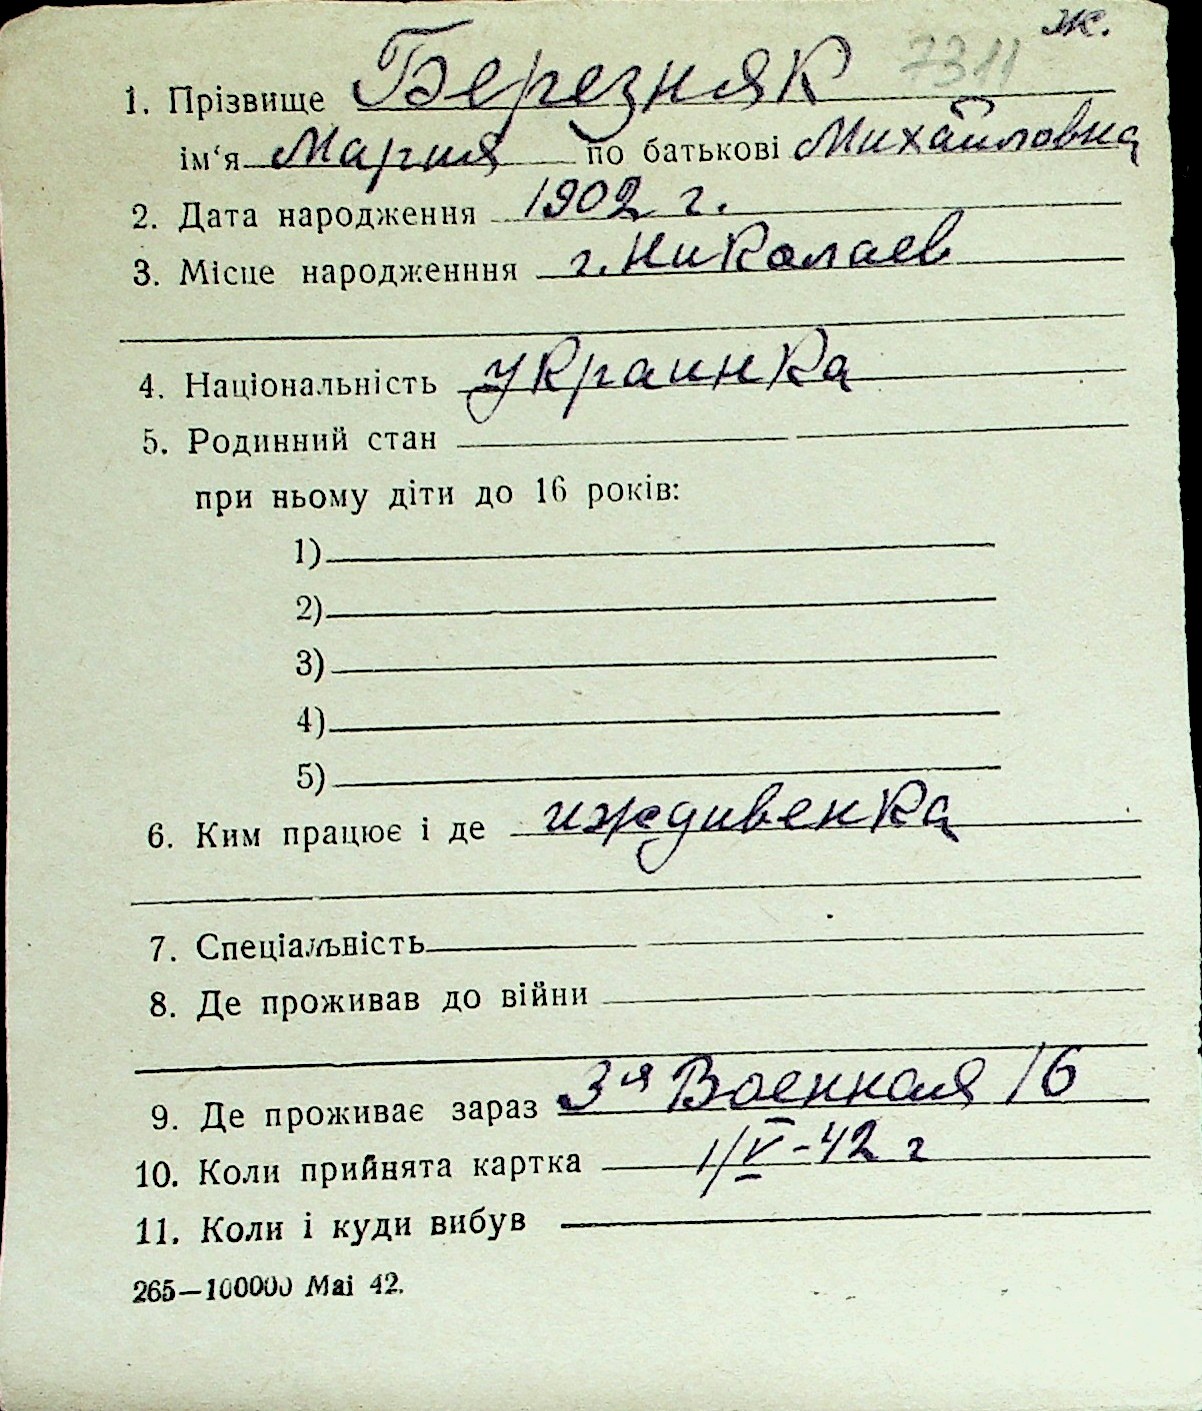 ж.
7311
1. Прізвище Березняк
ім‘я Мария по батькові Михайловна
2. Дата народження 1902 г.
3. Місце народженння г. Николаев
4. Національність украинка
5. Родинний стан
при ньому діти до 16 років:
1)
2)
3)
4)
5)
6. Ким працює і де иждивенка
7. Спеціальність
8. Де проживав до війни
9. Де проживає зараз 3я Военная 16
10. Коли прийнята картка 1/V-42 г
11. Коли і куди вибув
265—100000 Mai 42.